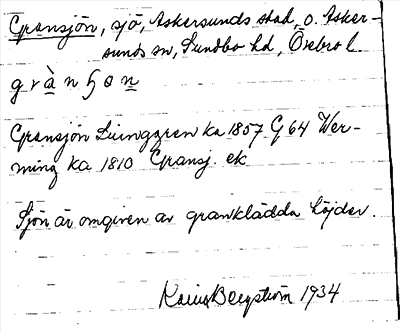 Gransjön, sjö, Askersunds stad, o. Asker-
sunds sn, Sundbo hd, Örebro l.
g r à n ɧ ɵ n
Gransjön Ljunggren ka 1857 G 64 Wer-
ming ka 1810 Gransj. ek
Sjön är omgiven av granklädda höjder.
Bergström 1934